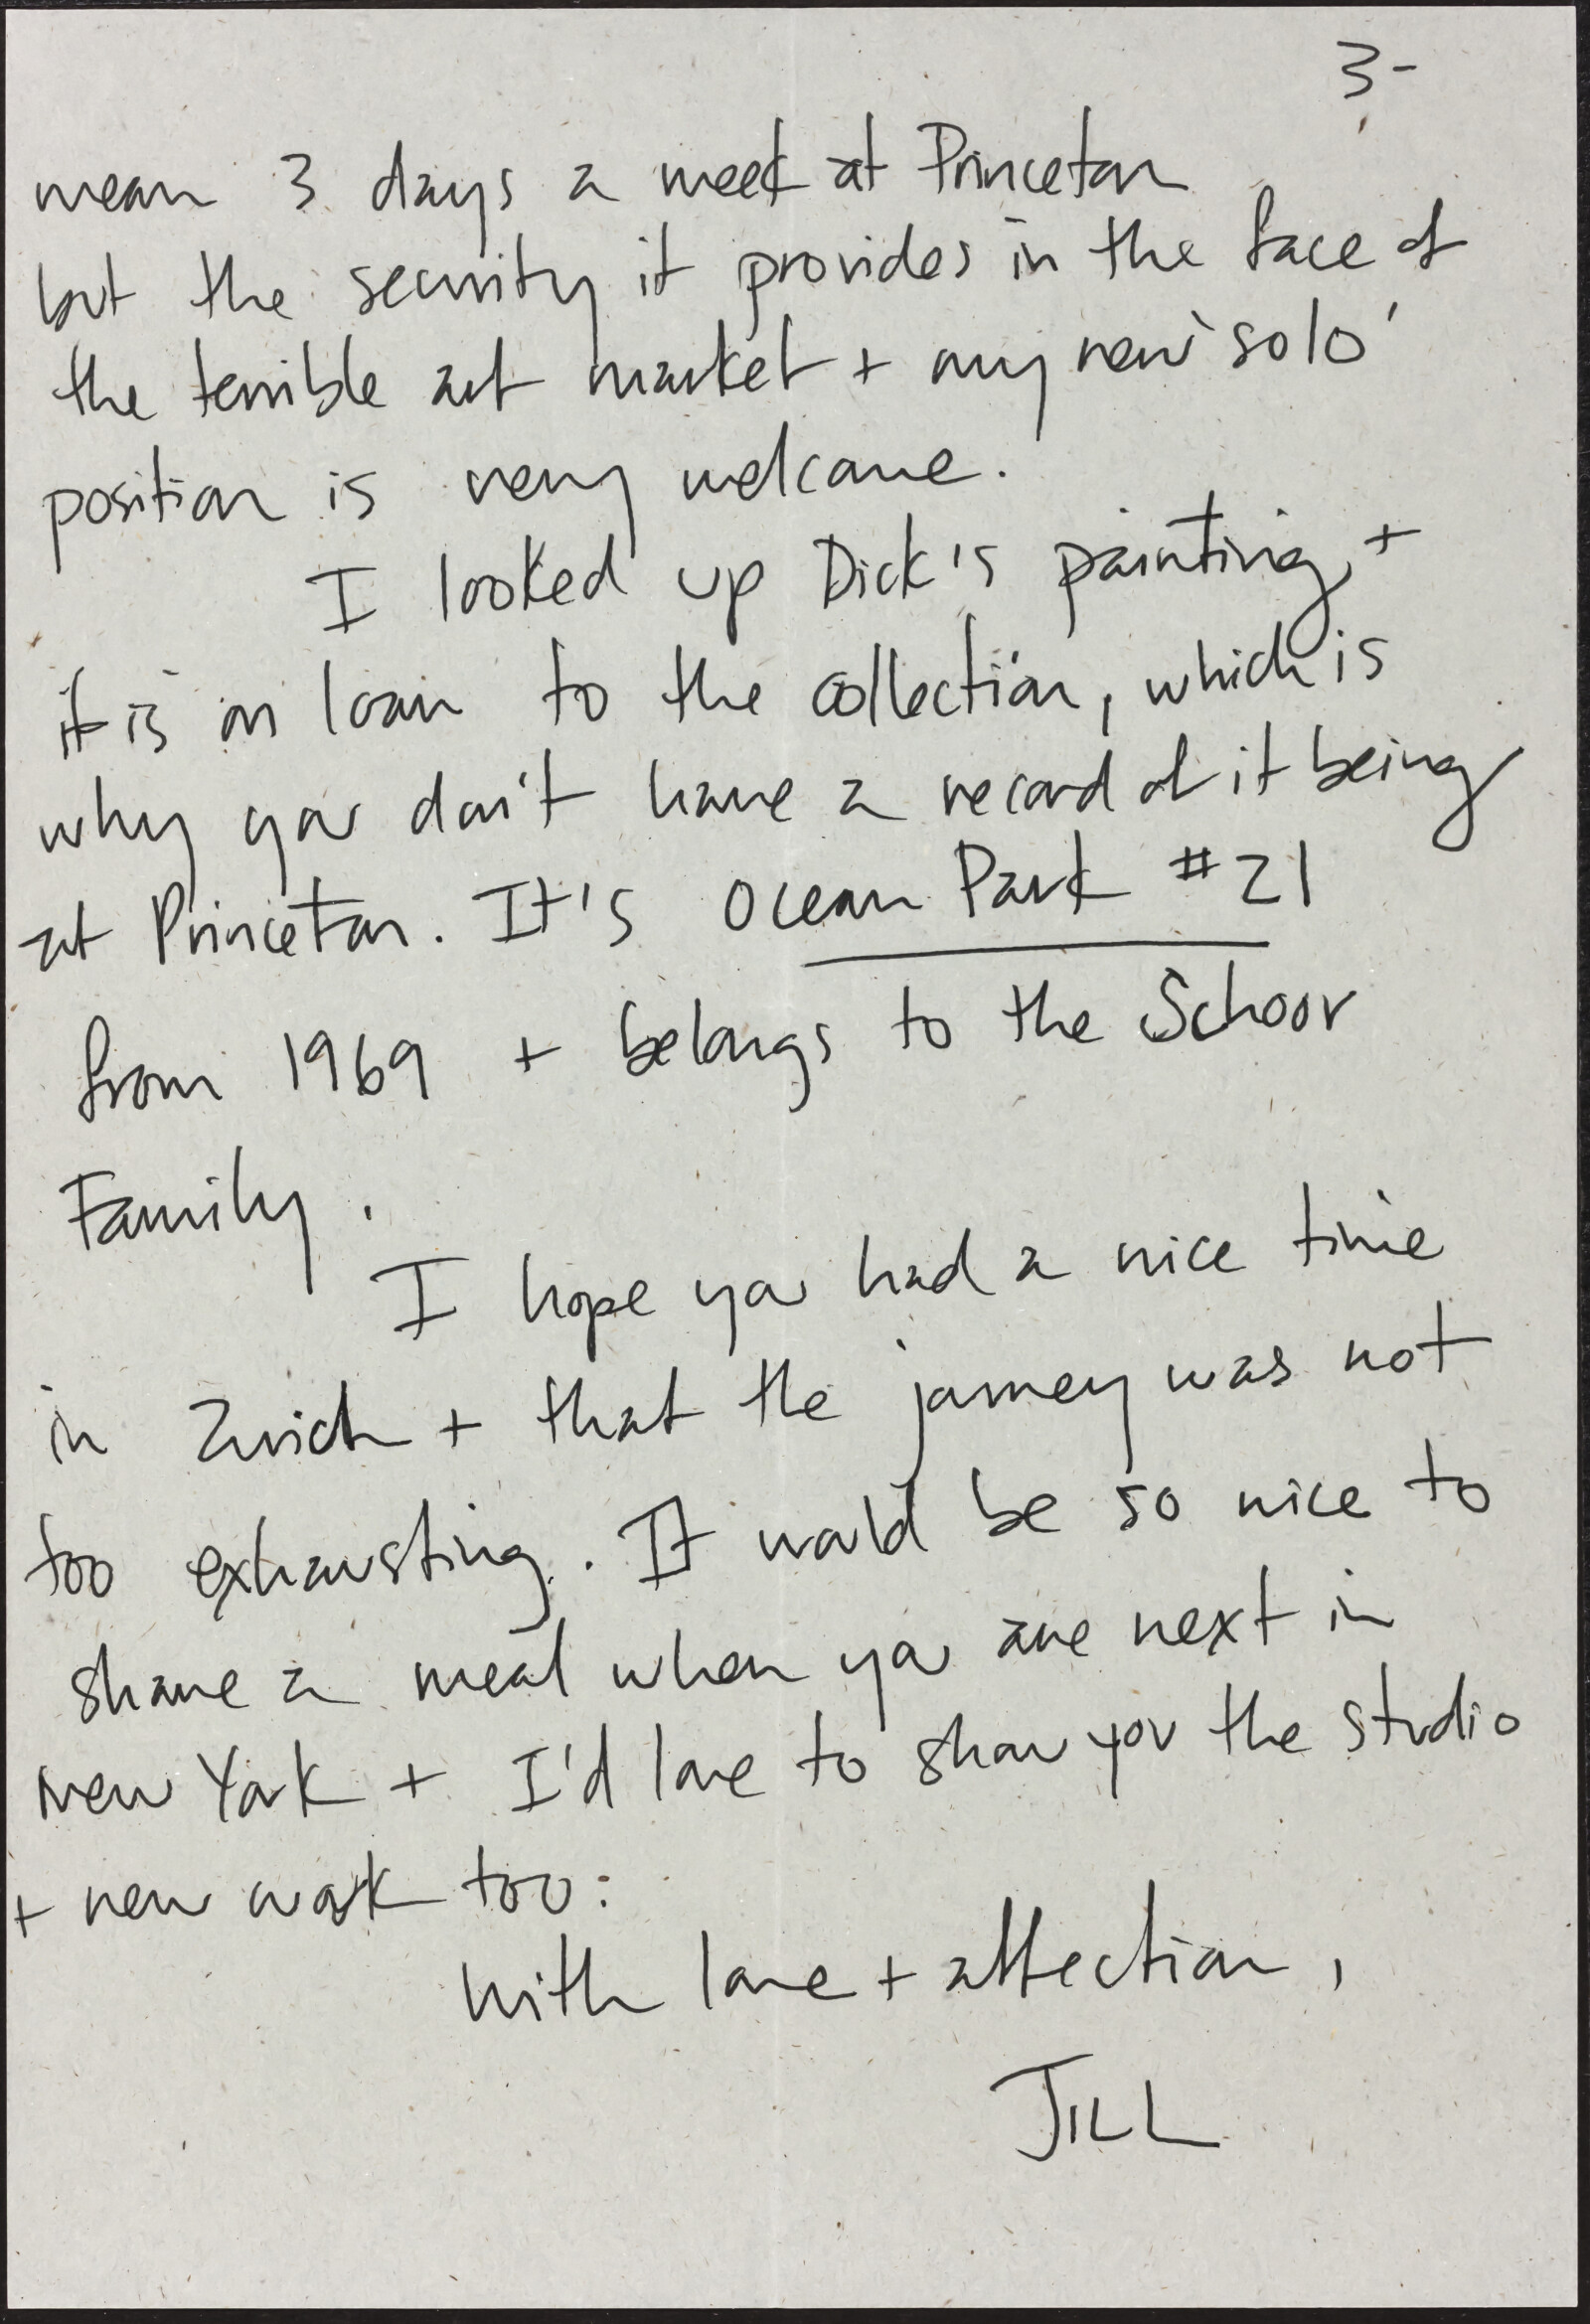 3-
mean 3 days a week at Princeton
but the security it provides in the face of
the terrible art market + my new 'solo'
position is very welcome.
I looked up Dick's painting, +
it is on loan to the collection, which is
why you don't have a record of it being
at Princeton. It's Ocean Park #21
from 1969 + belongs to the Schorr
Family.
I hope you had a nice time
in Zurich + that the journey was not
too exhausting. It would be so nice to
share a meal when you are next in
New York + I'd love to show you the studio
+ new work too:
With love + affection,
JILL